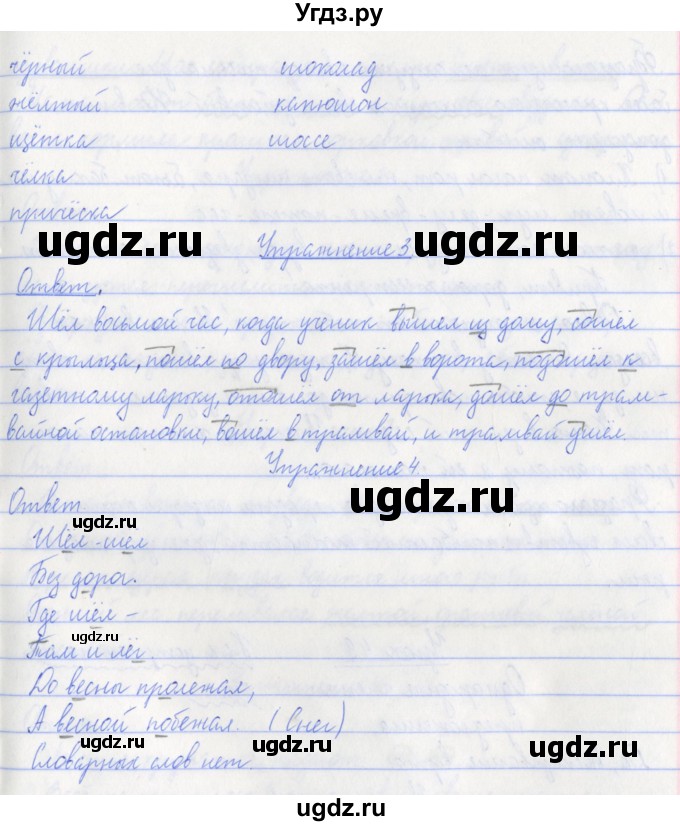 Угдз.ру
чёрный шоколад
жёлтый капюшон
щётка шоссе
чёлка
причёска
ugdz.ru ugdz.ru
Упражнение 3
Ответ.
Шёл восьмой час, когда ученик вышел из дому, сошёл
с крыльца, пошёл по двору, зашёл в ворота, подошёл к
газетному ларьку, отошёл от ларька, дошёл до трам-
вайной остановки, вошёл в трамвай, и трамвай ушёл.
Упражнение 4.
Ответ
ugdz.ru ugdz.ru
Шёл-шёл
Без дорог.
Где шёл –
ugdz.ru
Там и лёг.
До весны пролежал,
А весной побежал. (Снег)
ugdz.ru ugdz.ru ugdz.ru
Словарных слов нет
ugdz.ru